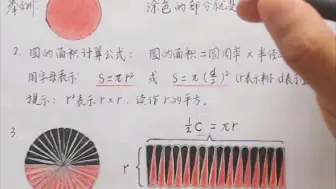 举例:
涂色的部分就是
2. 圆的面积计算公式: 圆的面积=圆周率×半径
用字母表示 S=πr² 或 S=π(d/2)² (r表示半径,d表示直
提示: r²表示r×r, 读作r的平方。
3.
½C=πr
r